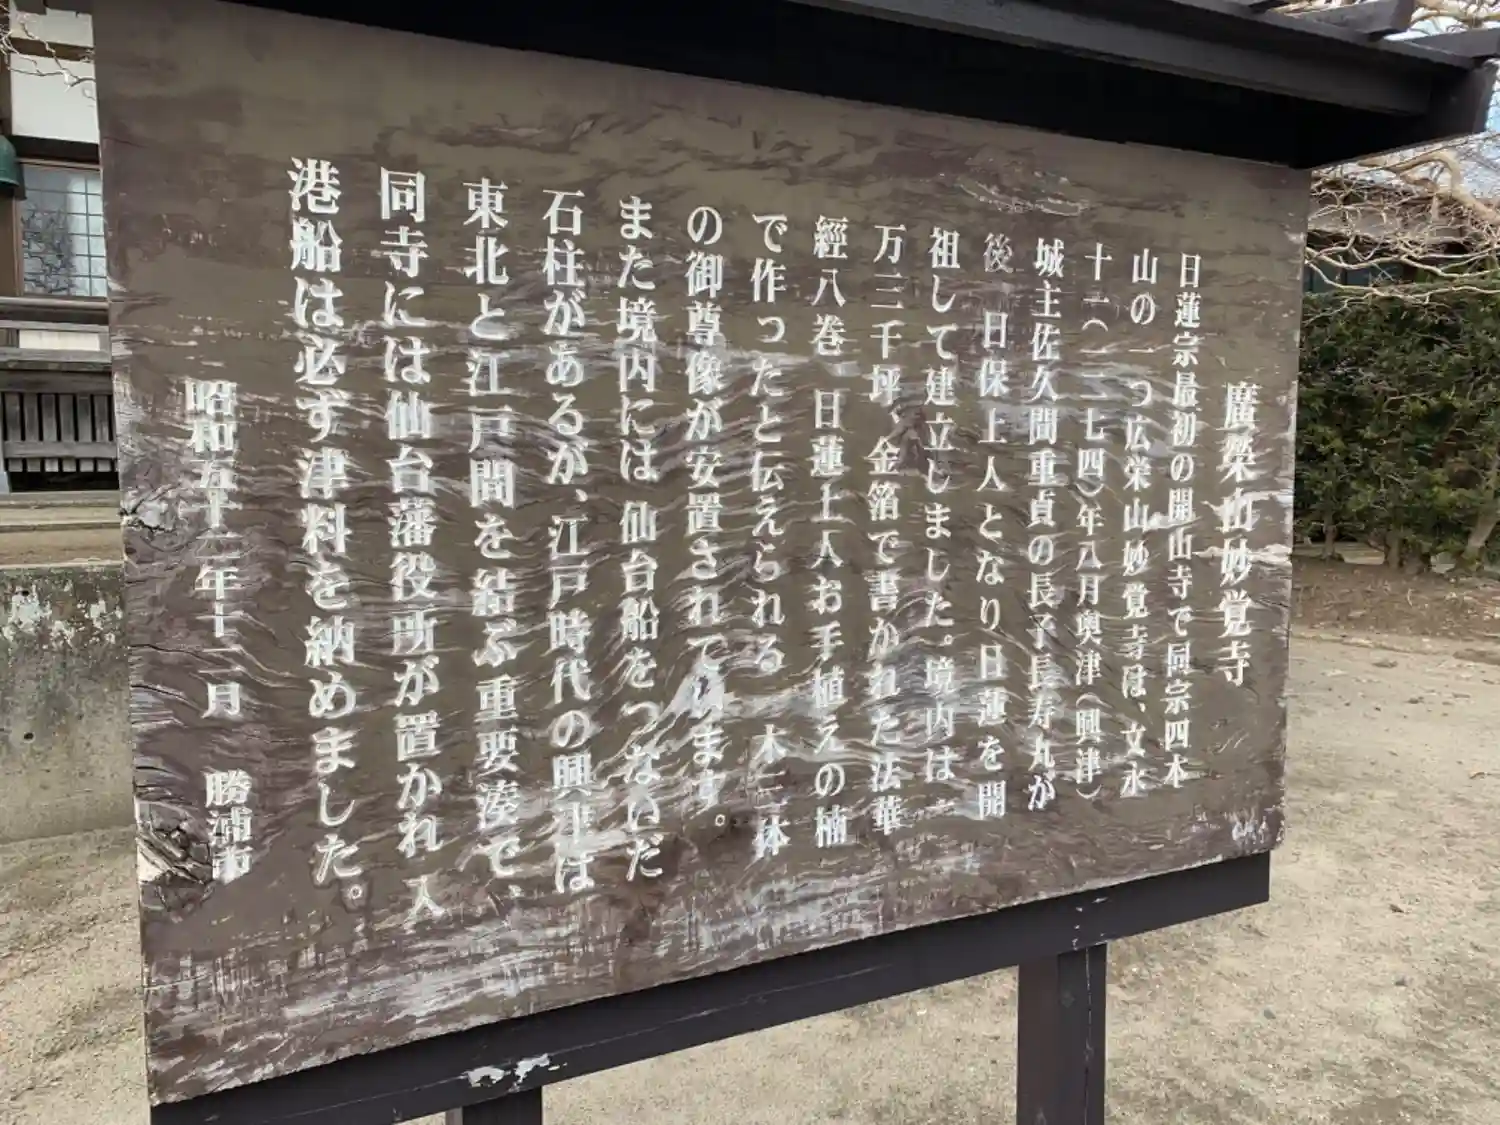 廣榮山妙覚寺
日蓮宗最初の開山寺で同宗四本
山の一つ広栄山妙覚寺は、文永
十一(一二七四)年八月奥津(興津)
城主佐久間重貞の長子長寿丸が
後 日保上人となり日蓮を開
祖して建立しました。境内は一
万三千坪、金箔で書かれた法華
經八巻、日蓮上人お手植えの楠
で作ったと伝えられる 木三体
の御尊像が安置されてます。
また境内には 仙台船をつないだ
石柱があるが、江戸時代の興津は
東北と江戸間を結ぶ重要湊で、
同寺には仙台藩役所が置かれ 入
港船は必ず津料を納めました。
昭和五十二年十二月 勝浦市